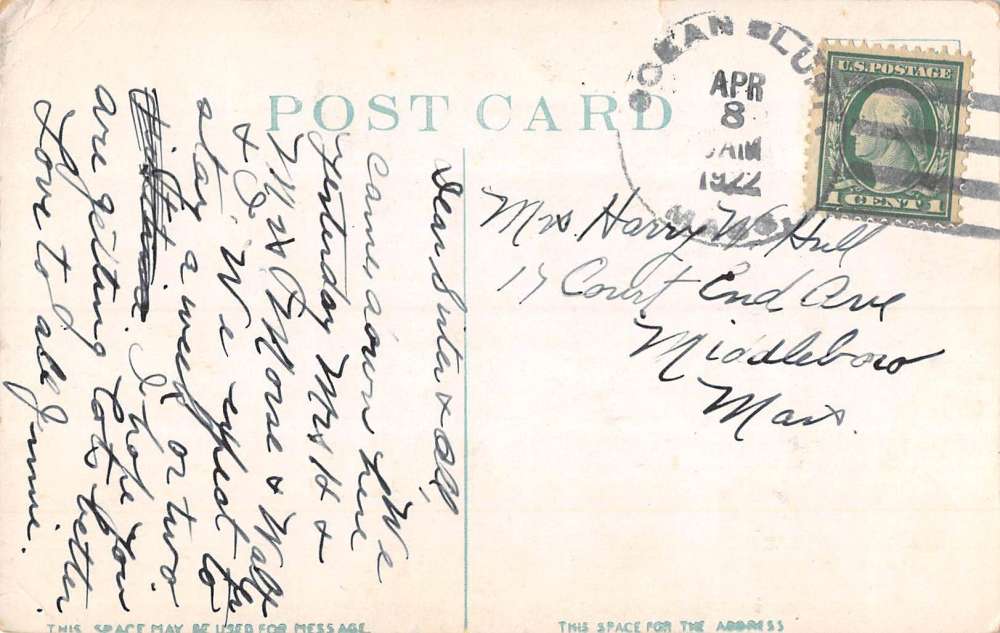 POST CARD
OCEAN BLUFF
APR
8
AM
1922
MASS
U.S. POSTAGE
1 CENT 1
Dear Sister & all,
We
came down here
yesterday Mrs H &
Mrs Morse & Walter
& I. We expect to
stay a week or two
I hope you
are getting lots better
Love to all Jennie.
Mrs. Harry W Hull
17 Court End Ave
Middleboro
Mass.
THIS SPACE MAY BE USED FOR MESSAGE
THIS SPACE FOR THE ADDRESS